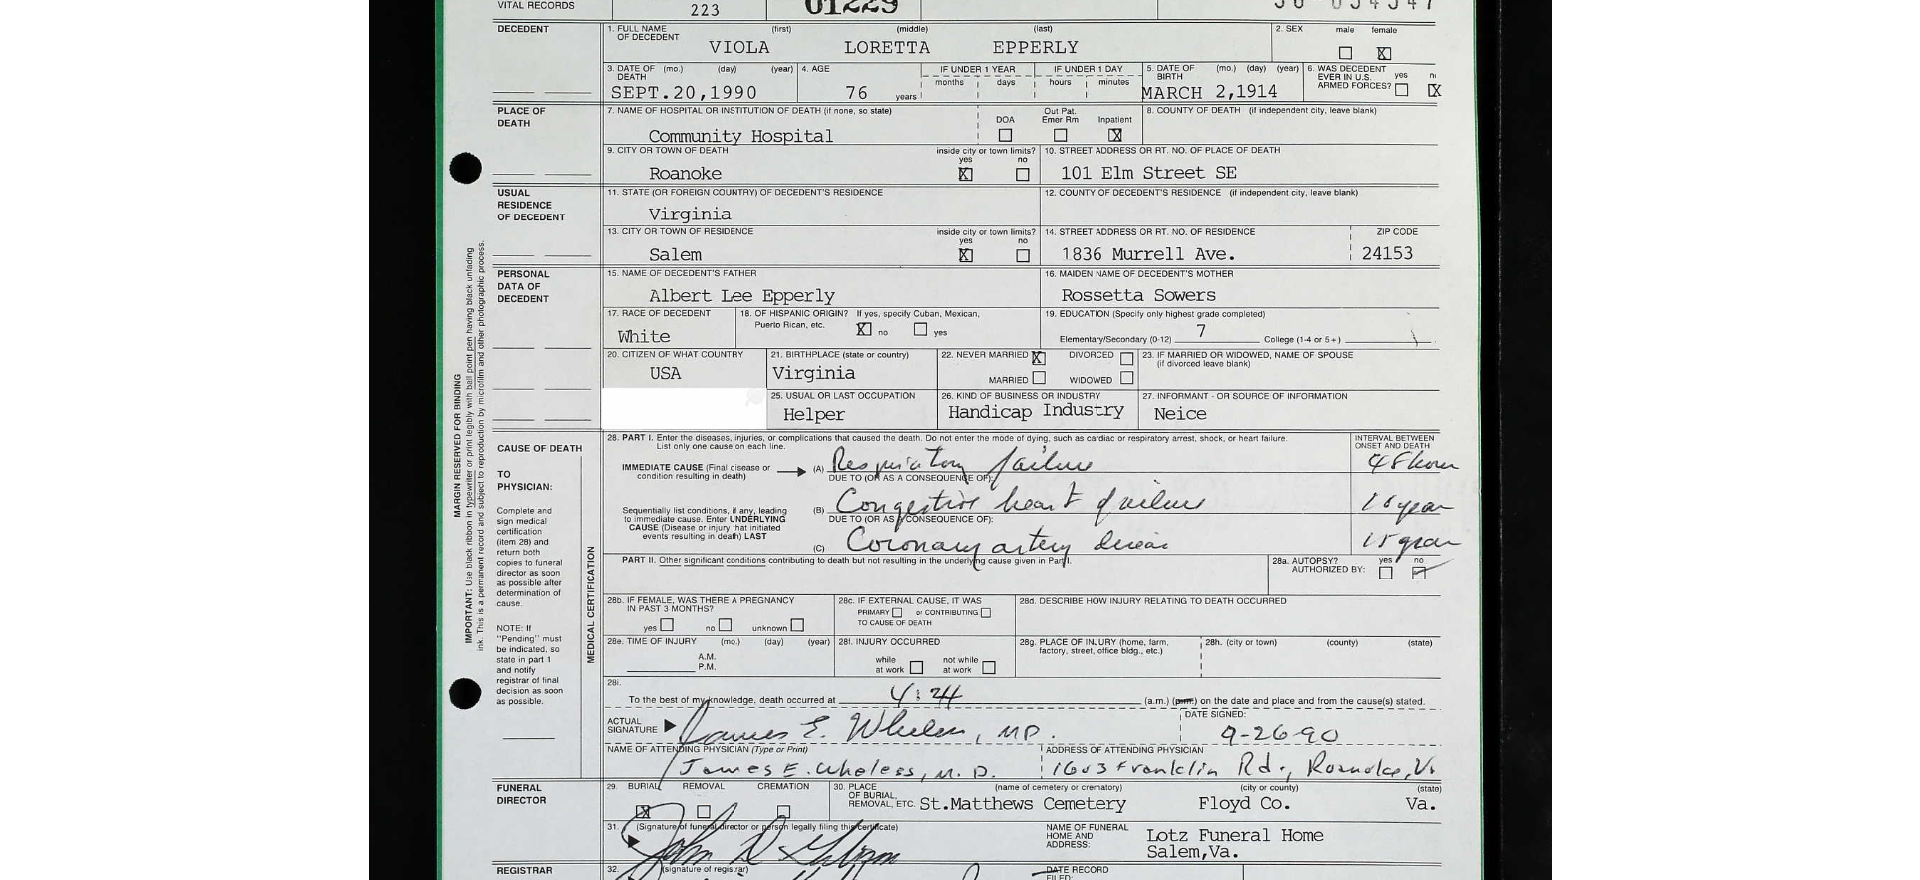 VITAL RECORDS 223 01229
DECEDENT
1. FULL NAME OF DECEDENT (first) (middle) (last) 2. SEX male female
VIOLA LORETTA EPPERLY X
3. DATE OF DEATH (mo.) (day) (year) 4. AGE IF UNDER 1 YEAR IF UNDER 1 DAY 5. DATE OF BIRTH (mo.) (day) (year) 6. WAS DECEDENT EVER IN U.S. ARMED FORCES? yes
months days hours minutes
SEPT.20,1990 76 years MARCH 2,1914 X
PLACE OF DEATH
7. NAME OF HOSPITAL OR INSTITUTION OF DEATH (if none, so state) DOA Out Pat. Emer Rm Inpatient 8. COUNTY OF DEATH (if independent city, leave blank)
Community Hospital X
9. CITY OR TOWN OF DEATH inside city or town limits? yes no 10. STREET ADDRESS OR RT. NO. OF PLACE OF DEATH
Roanoke X 101 Elm Street SE
USUAL RESIDENCE OF DECEDENT
11. STATE (OR FOREIGN COUNTRY) OF DECEDENT'S RESIDENCE 12. COUNTY OF DECEDENT'S RESIDENCE (if independent city, leave blank)
Virginia
13. CITY OR TOWN OF RESIDENCE inside city or town limits? yes no 14. STREET ADDRESS OR RT. NO. OF RESIDENCE ZIP CODE
Salem X 1836 Murrell Ave. 24153
PERSONAL DATA OF DECEDENT
15. NAME OF DECEDENT'S FATHER 16. MAIDEN NAME OF DECEDENT'S MOTHER
Albert Lee Epperly Rossetta Sowers
17. RACE OF DECEDENT 18. OF HISPANIC ORIGIN? If yes, specify Cuban, Mexican, Puerto Rican, etc. X no yes 19. EDUCATION (Specify only highest grade completed)
White Elementary/Secondary (0-12) 7 College (1-4 or 5+)
20. CITIZEN OF WHAT COUNTRY 21. BIRTHPLACE (state or country) 22. NEVER MARRIED X DIVORCED 23. IF MARRIED OR WIDOWED, NAME OF SPOUSE (if divorced leave blank)
USA Virginia MARRIED WIDOWED
25. USUAL OR LAST OCCUPATION 26. KIND OF BUSINESS OR INDUSTRY 27. INFORMANT - OR SOURCE OF INFORMATION
Helper Handicap Industry Neice
CAUSE OF DEATH
28. PART I. Enter the diseases, injuries, or complications that caused the death. Do not enter the mode of dying, such as cardiac or respiratory arrest, shock, or heart failure.
List only one cause on each line. INTERVAL BETWEEN ONSET AND DEATH
IMMEDIATE CAUSE (Final disease or condition resulting in death) (A) Respiratory failure 48 hour
DUE TO (OR AS A CONSEQUENCE OF):
Sequentially list conditions, if any, leading to immediate cause. Enter UNDERLYING CAUSE (Disease or injury that initiated events resulting in death) LAST
(B) Congestive heart failure year
DUE TO (OR AS A CONSEQUENCE OF):
(C) Coronary artery disease 15 year
PART II. Other significant conditions contributing to death but not resulting in the underlying cause given in Part I. 28a. AUTOPSY? AUTHORIZED BY: yes no
TO PHYSICIAN:
Complete and
sign medical
certification
(item 28) and
return both
copies to funeral
director as soon
as possible after
determination of
cause.
NOTE: If
"Pending" must
be indicated, so
state in part 1
and notify
registrar of final
decision as soon
as possible.
MEDICAL CERTIFICATION
28b. IF FEMALE, WAS THERE A PREGNANCY IN PAST 3 MONTHS? yes no unknown
28c. IF EXTERNAL CAUSE, IT WAS PRIMARY or CONTRIBUTING TO CAUSE OF DEATH
28d. DESCRIBE HOW INJURY RELATING TO DEATH OCCURRED
28e. TIME OF INJURY (mo.) (day) (year) A.M. P.M.
28f. INJURY OCCURRED while at work not while at work
28g. PLACE OF INJURY (home, farm, factory, street, office bldg., etc.)
28h. (city or town) (county) (state)
28i.
To the best of my knowledge, death occurred at 4:24 (a.m.) (p.m.) on the date and place and from the cause(s) stated.
ACTUAL SIGNATURE James E. Whelen, MD. DATE SIGNED: 9-26-90
NAME OF ATTENDING PHYSICIAN (Type or Print) ADDRESS OF ATTENDING PHYSICIAN
James E. Wheless, M.D. 1603 Franklin Rd., Roanoke, Va
FUNERAL DIRECTOR
29. BURIAL REMOVAL CREMATION 30. PLACE OF BURIAL, REMOVAL, ETC. (name of cemetery or crematory) (city or county) (state)
X St.Matthews Cemetery Floyd Co. Va.
31. (Signature of funeral director or person legally filing this certificate) NAME OF FUNERAL HOME AND ADDRESS: Lotz Funeral Home
Salem,Va.
REGISTRAR 32. (signature of registrar) DATE RECORD FILED:
MARGIN RESERVED FOR BINDING
IMPORTANT: Use black ribbon in typewriter or print legibly with ball point pen having black unfading
ink. This is a permanent record and subject to reproduction by microfilm and other photographic process.